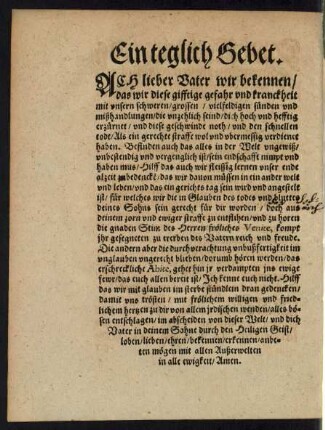 Ein teglich Gebet.
ACH lieber Vater wir bekennen/
das wir diese gifftige gefahr vnd kranckheit
mit vnsern schweren/grossen / vielfeldigen sünden vnd
mißhandlungen/die vnzehlich seind/dich hoch vnd hefftig
erzürnet / vnd diese geschwinde noth/ vnd den schnellen
todt/Als ein gerechte straffe wol vnd vbermessig verdienet
haben. Befinden auch das alles in der Welt vngewiß/
vnbestendig vnd vergenglich ist/sein endschafft nimpt vnd
haben mus/Hilff das auch wir fleissig lernen vnser ende
alzeit zu bedenckē/das wir dauon müssen in ein ander welt
vnd leben/vnd das ein gerichts tag sein wird vnd angestelt
ist/ für welches wir die im Glauben des todes vnd bluttes
deines Sohns sein gerecht für dir worden/ hoch aus
deinem zorn vnd ewiger straffe zu entfliehen/vnd zu hören
die gnaden Stim des Herren fröliches Venite, kompt
jhr gesegneten zu ererben des Vatern reich vnd freude.
Die andern aber die durch verachtung vnbußfertigkeit im
vnglauben vngerecht blieben/dorumb hören werden/das
erschreckliche Abite, gehet hin jr verdampten jns ewige
fewr/das euch allen bereit ist/Jch kenne euch nicht. Hilff
das wir mit glauben im sterbē stündlem dran gedencken/
damit vns trösten / mit frölichem willigen vnd fried-
lichem hertzen zu dir von allem jrdischen wenden/alles bö-
sen entschlagen/im abscheiden von dieser Welt/ vnd dich
Vater in deinem Sohne durch den Heiligen Geist/
loben/lieben/ehren/bekennen/erkennen/anbe-
ten mögen mit allen Außerwelten
in alle ewigkeit/Amen.